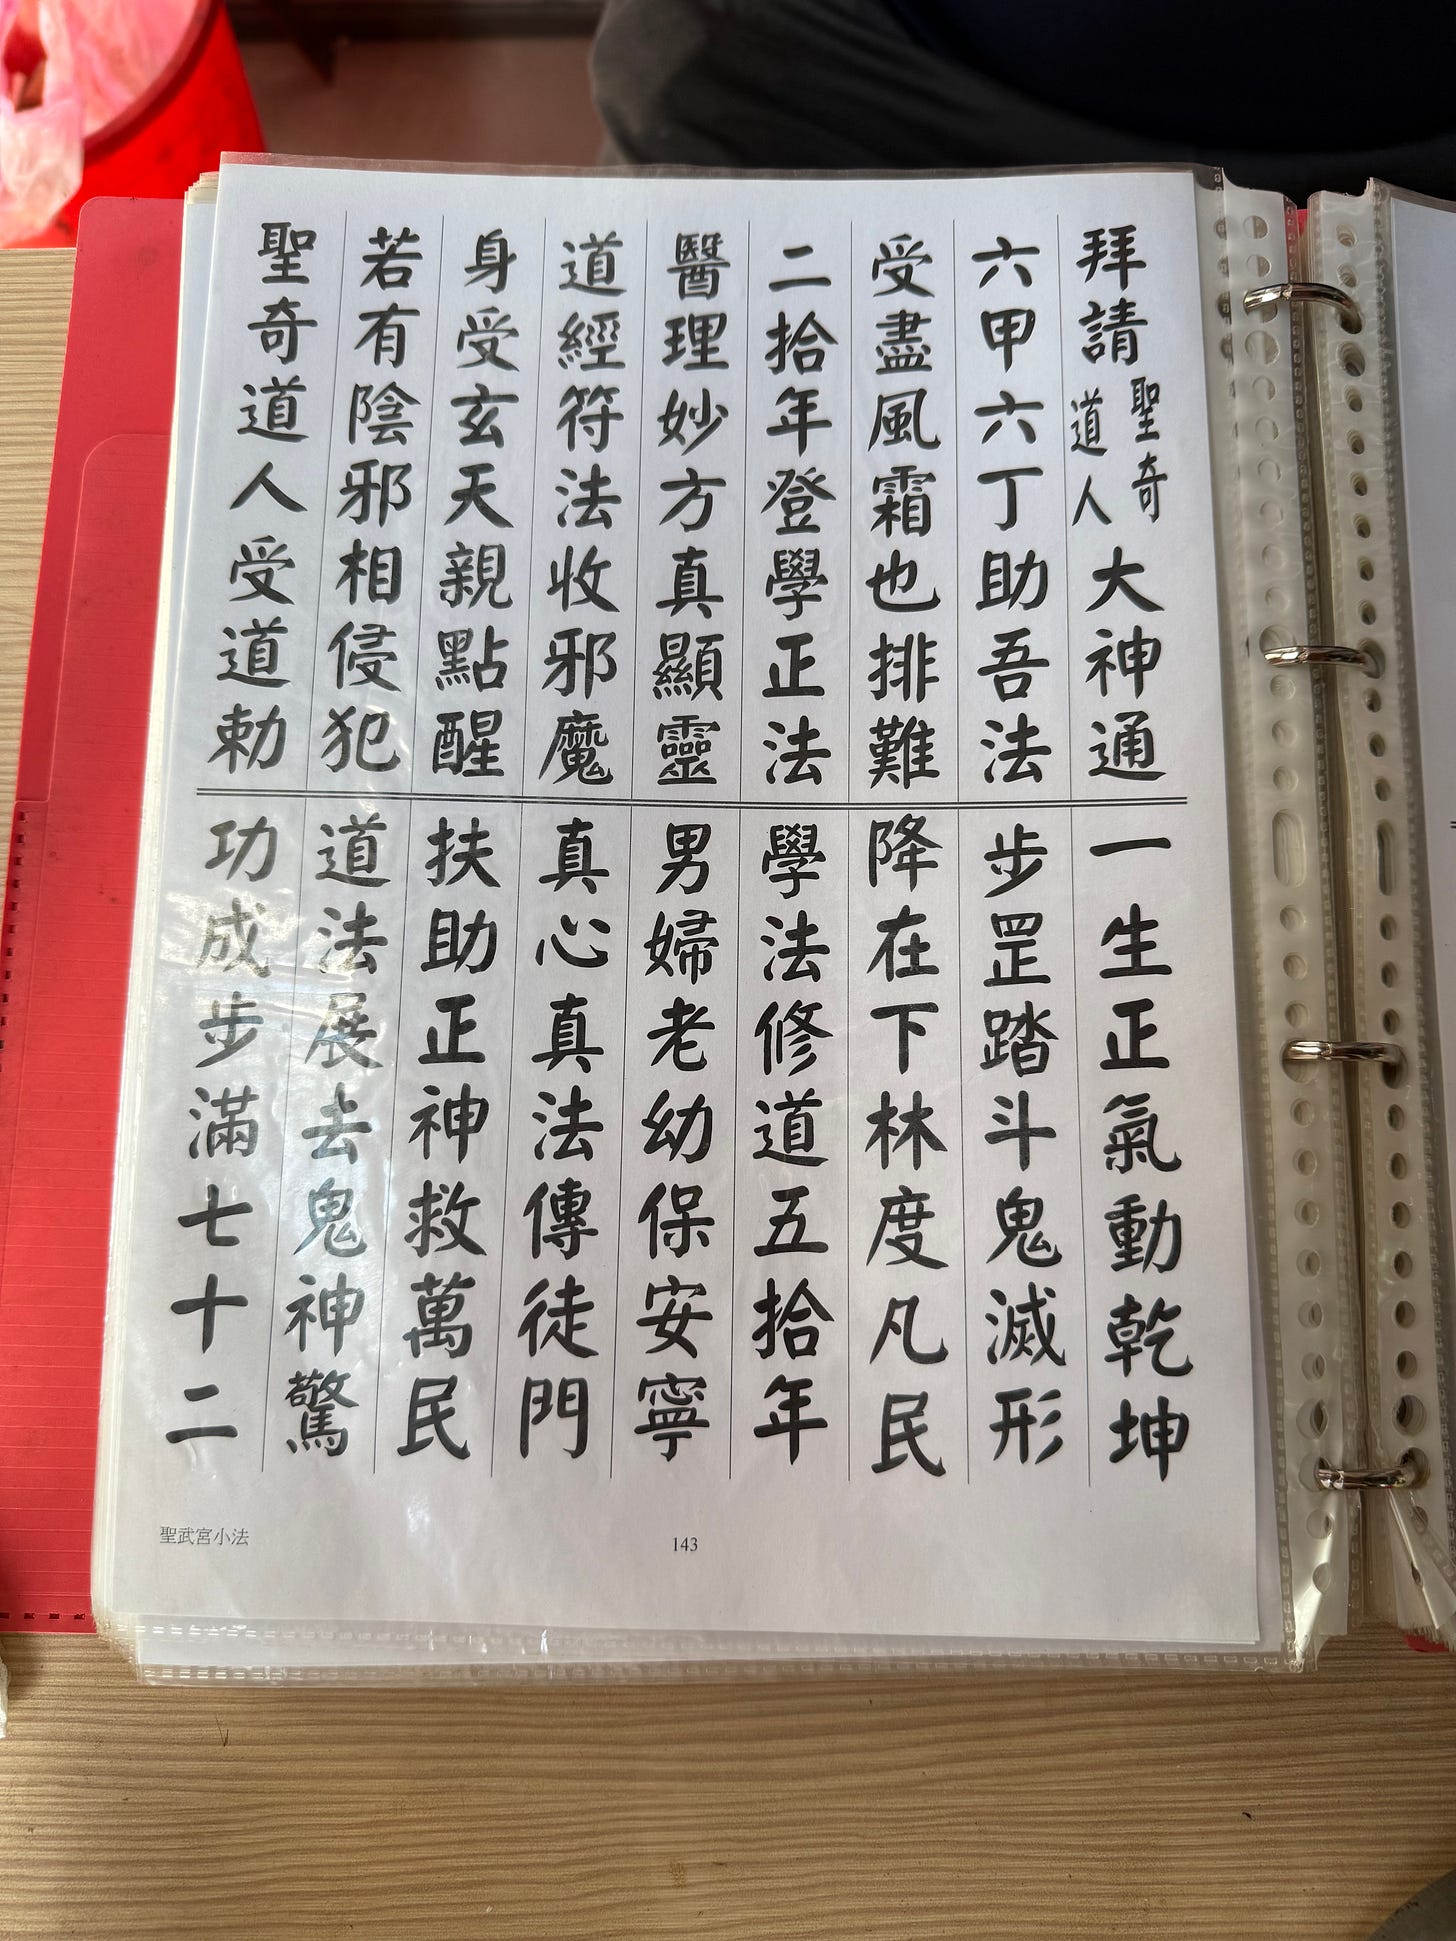 拜請聖奇道人大神通
一生正氣動乾坤
六甲六丁助吾法
步罡踏斗鬼滅形
受盡風霜也排難
降在下林度凡民
二拾年登學正法
學法修道五拾年
醫理妙方真顯靈
男婦老幼保安寧
道經符法收邪魔
真心真法傳徒門
身受玄天親點醒
扶助正神救萬民
若有陰邪相侵犯
道法展去鬼神驚
聖奇道人受道勅
功成步滿七十二
聖武宮小法
143